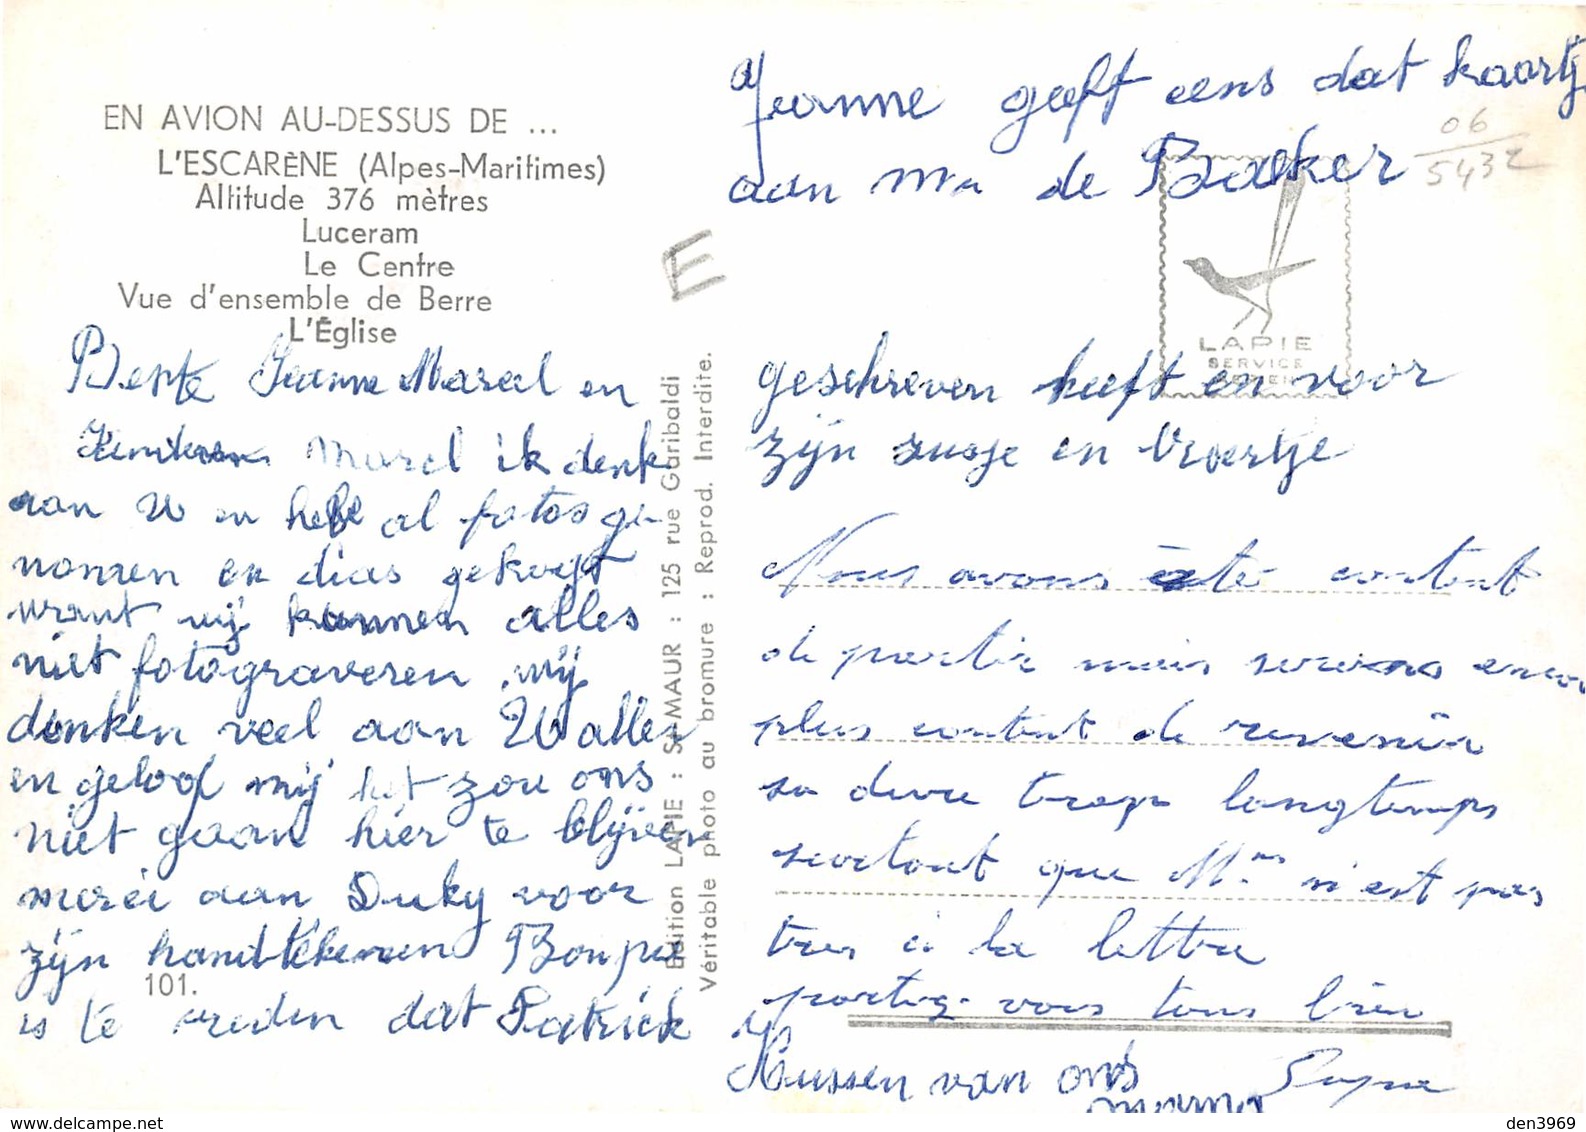 EN AVION AU-DESSUS DE ...
L'ESCARÈNE (Alpes-Maritimes)
Altitude 376 mètres
Luceram
Le Centre
Vue d'ensemble de Berre
L'Église
Beste Jeanne Marcel en
Kinderen Marcel ik denk
aan U en hebe al fotos ge
nomen en dias gekogt
want wij kunnen alles
niet fotograveren wij
denken veel aan U alles
en geloof mij het zou ons
niet gaan hier te blijven
merci aan Duky voor
zijn handtekenen Bonpa
is te vreden dat Patrick
101.
Edition LAPIE : St-MAUR : 125 rue Garibaldi
Véritable photo au bromure : Reprod. Interdite.
E
Jeanne geeft eens dat kaartj
aan Mr de Backer
06
5432
LAPIE
SERVICE
geschreven heeft en voor
zijn zusje en broertje
Nous avons étés content
de partir mais serons enco
plus content de revenir
sa dure trop longtemps
surtout que Mr n'est pas
tres à la lettre
portez-vous tous bien
Kussen van ons
mama
den3969